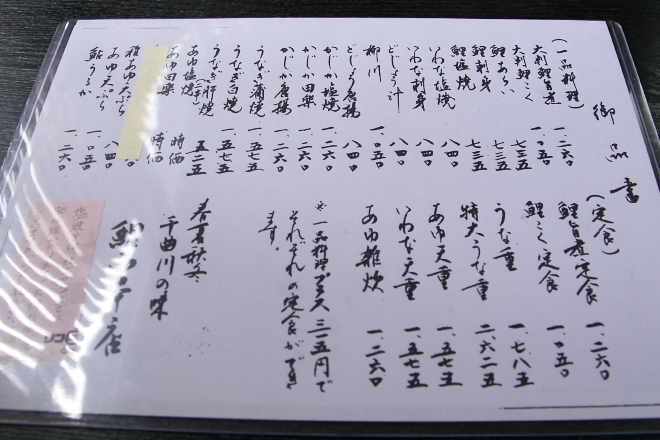 御品書
(一品料理)
大判鯉旨煮 一、二六〇
大判鯉こく 一、〇五〇
鯉あらい 七三五
鯉刺身 七三五
鯉塩焼
いわな塩焼 八四〇
いわな刺身 八四〇
どじょう汁 八四〇
柳川 一、〇五〇
どじょう唐揚 八四〇
かじか塩焼 一、二六〇
かじか田楽 一、二六〇
かじか唐揚 一、二六〇
うなぎ蒲焼 一、五七五
うなぎ白焼 一、五七五
うなぎ肝焼 五二五
あゆ塩焼 時価
あゆ田楽 時価
稚あゆ天ぷら 八四〇
あゆ天ぷら 一、〇五〇
鮎うるか 一、二六〇
(定食)
鯉旨煮定食 一、二六〇
鯉こく定食 一、〇五〇
うな重 一、七八五
特大うな重 二、六二五
あゆ天重 一、五七五
いわな天重 一、五七五
あゆ雑炊 一、二六〇
※一品料理プラス三一五円で
それぞれの定食ができ
ます。
春夏秋冬
千曲川の味
鯉
店